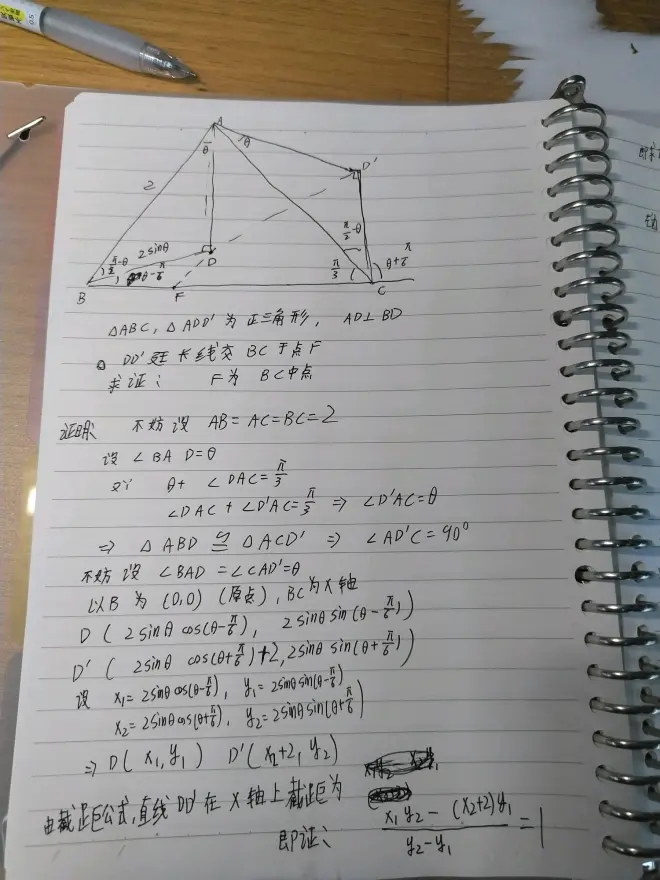 0.5
A
θ
θ
D'
2
π/2-θ
2sinθ
D
π/2-θ
θ-π/6
π/3
θ+π/6
B
F
C
△ABC, △ADD'为正三角形, AD⊥BD
DD'延长线交BC于点F
求证: F为BC中点
证明 不妨设 AB=AC=BC=2
设∠BAD=θ
又∵ θ+∠DAC=π/3
∠DAC+∠D'AC=π/3 ⇒ ∠D'AC=θ
⇒ △ABD≌△ACD' ⇒ ∠AD'C=90°
不妨设 ∠BAD=∠CAD'=θ
以B为(0,0)(原点), BC为X轴
D(2sinθcos(θ-π/6), 2sinθsin(θ-π/6))
D'(2sinθcos(θ+π/6)+2, 2sinθsin(θ+π/6))
设 x₁=2sinθcos(θ-π/6), y₁=2sinθsin(θ-π/6)
x₂=2sinθcos(θ+π/6), y₂=2sinθsin(θ+π/6)
⇒ D(x₁,y₁) D'(x₂+2,y₂)
由截距公式,直线DD'在X轴上截距为
即证: (x₁y₂-(x₂+2)y₁)/(y₂-y₁)=1